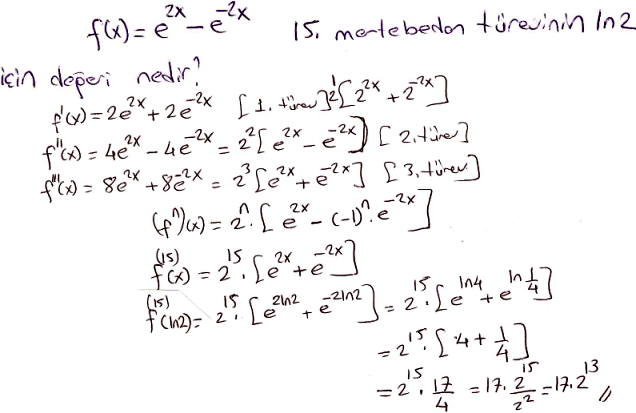 f(x) = e^2x - e^-2x 15. mertebeden türevinin ln2
için değeri nedir?
f'(x) = 2e^2x + 2e^-2x [1. türev] 2^1[2^2x + 2^-2x]
f''(x) = 4e^2x - 4e^-2x = 2^2[e^2x - e^-2x] [2. türev]
f'''(x) = 8e^2x + 8e^-2x = 2^3[e^2x + e^-2x] [3. türev]
(f^n)(x) = 2^n.[e^2x - (-1)^n.e^-2x]
f^(15)(x) = 2^15.[e^2x + e^-2x]
f^(15)(ln2) = 2^15.[e^2ln2 + e^-2ln2] = 2^15.[e^ln4 + e^ln 1/4]
= 2^15.[4 + 1/4]
= 2^15. 17/4 = 17. 2^15/2^2 = 17.2^13 //